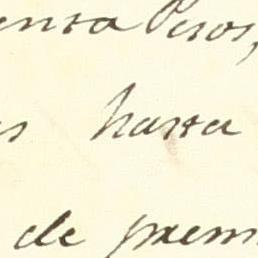 enta Pesos,
s hasta
de prem